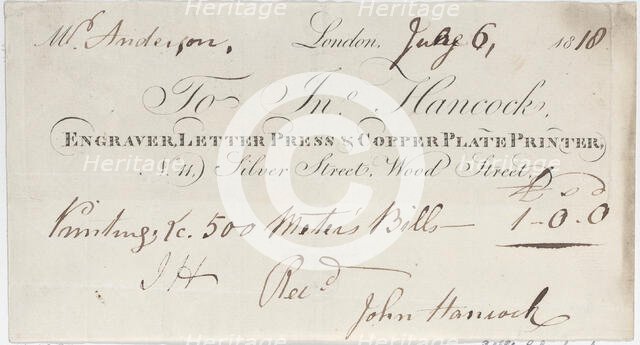 Mr. Anderson, London, July 6, 1818
To Jno. Hancock,
ENGRAVER, LETTER PRESS & COPPER PLATE PRINTER,
Silver Street, Wood Street,
£ s d
Printing &c. 500 Meter's Bills — 1-0-0
JH Recd
John Hancock
Heritage
Heritage
Heritage
Heritage
Heritage
Heritage
C